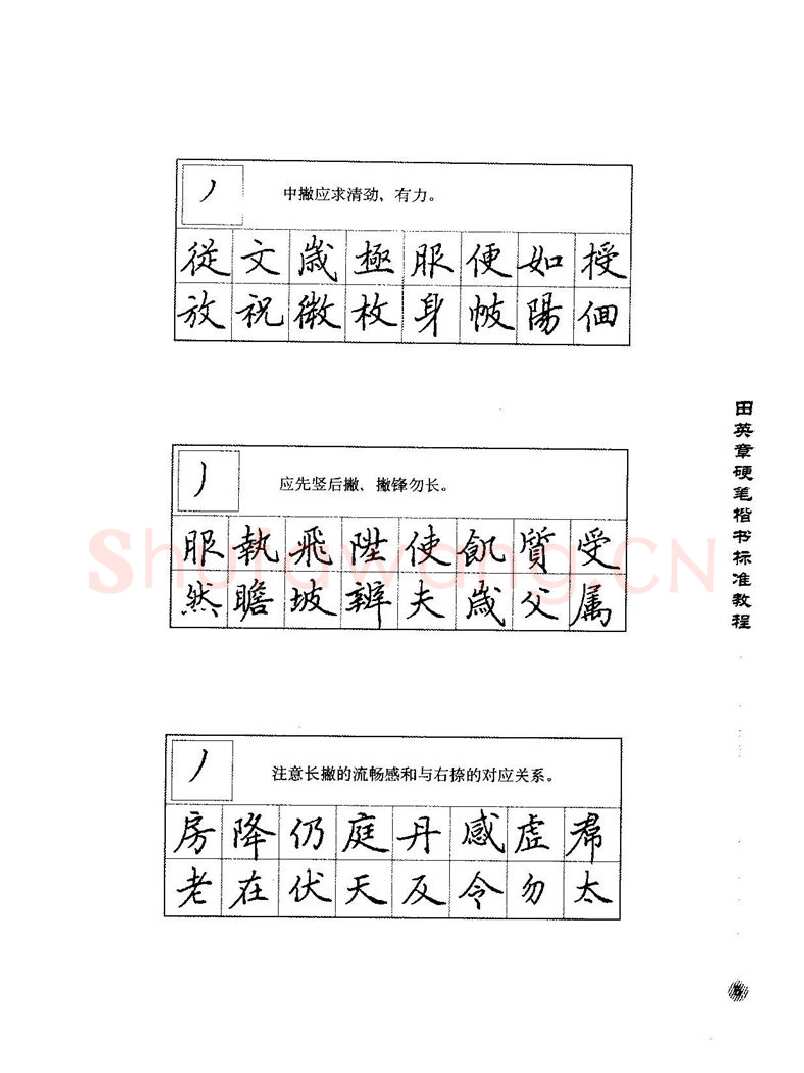 中撇应求清劲、有力。
從文歲極服便如授
放祝微枚身帔陽佪
应先竖后撇、撇锋勿长。
服執飛陞使飢質受
然瞻坡辨夫歲父属
注意长撇的流畅感和与右捺的对应关系。
房降仍庭丹感虚
老在伏天反令勿太
田英章硬笔楷书标准教程
Shufawang.CN